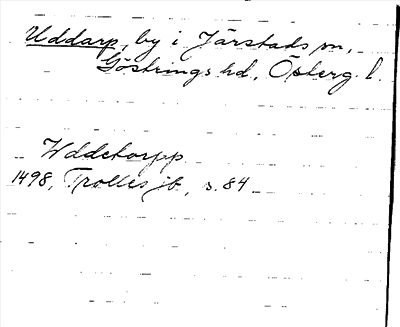 Uddarp, by i Järstads sn,
Göstrings hd, Österg. l.
Wddetorpp
1498, Trolles jb, s. 84